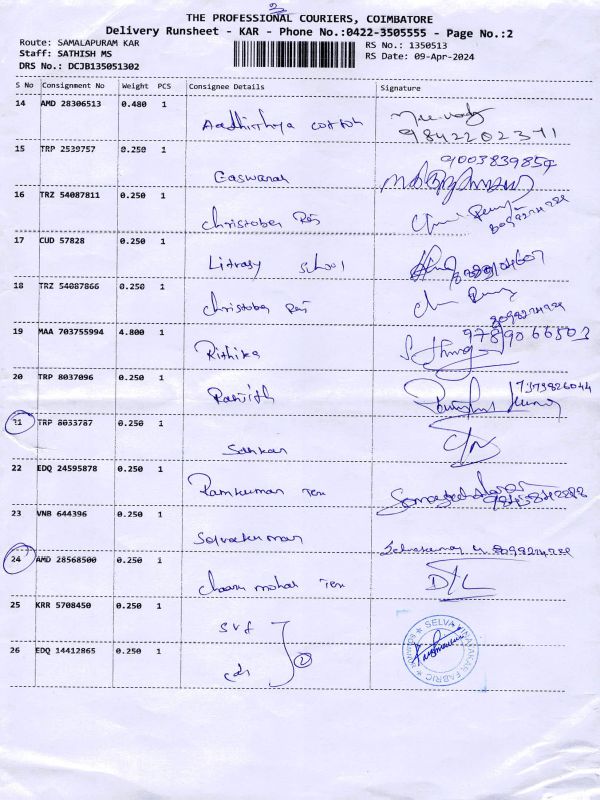 2
THE PROFESSIONAL COURIERS, COIMBATORE
Delivery Runsheet - KAR - Phone No.:0422-3505555 - Page No.:2
Route: SAMALAPURAM KAR
RS No.: 1350513
Staff: SATHISH MS
RS Date: 09-Apr-2024
DRS No.: DCJB135051302
S No Consignment No Weight PCS Consignee Details Signature
14 AMD 28306513 0.480 1
Aadhithya cotton
9842202371
15 TRP 2539757 0.250 1
9003839854
Easwaran
16 TRZ 54087811 0.250 1
Christober Raj
8099224228
17 CUD 57828 0.250 1
Litrasy school
18 TRZ 54087866 0.250 1
Christober Raj
8098224228
19 MAA 703755994 4.800 1
9789066503
Rithika
20 TRP 8037096 0.250 1
7373826044
Ranjith
21 TRP 8033787 0.250 1
Sankar
22 EDQ 24595878 0.250 1
Ramkumar Tex
23 VNB 644396 0.250 1
Selvakumar
24 AMD 28568500 0.250 1
Charu mohar Tex
D/L
25 KRR 5708450 0.250 1
SVF
SELVA VINAYAKAR FABRIC
26 EDQ 14412865 0.250 1
2